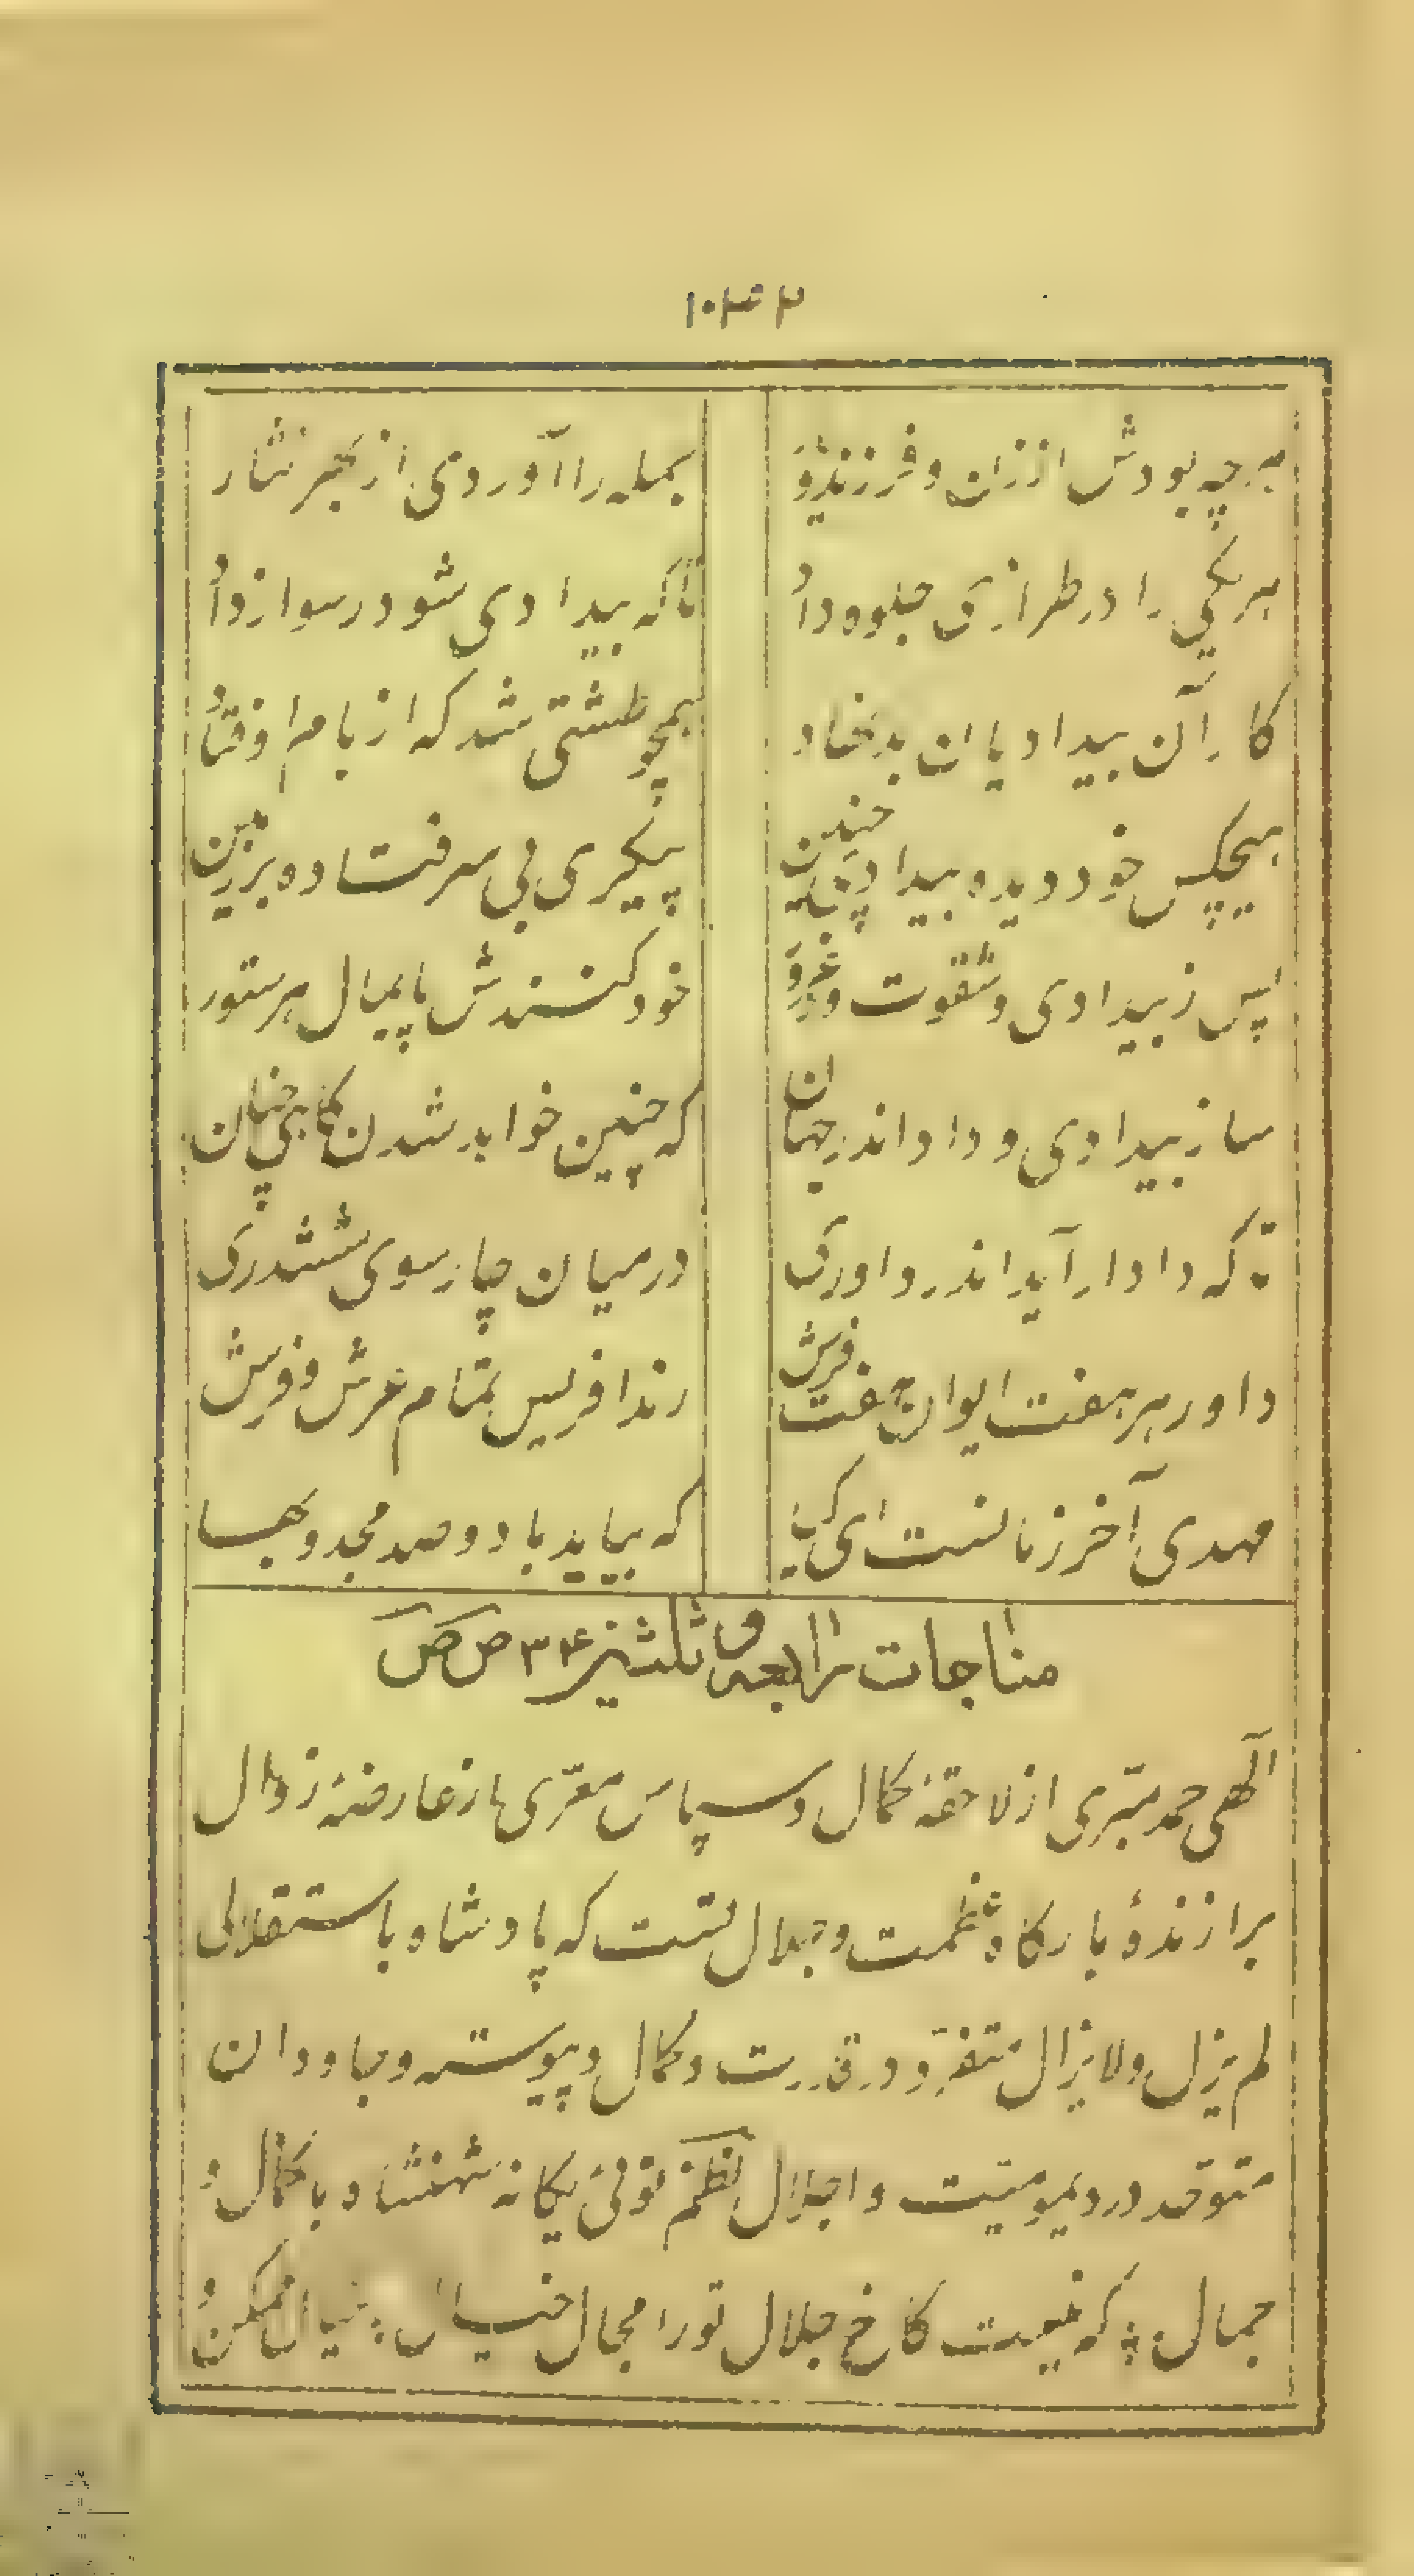 ۱۰۴۲
هرچه بودش از زن و فرزند و جمله را آوردی از بهر نثار
هر یکی را در طرازی جلوه داد تا که بیدادی شود رسوا ز داد
کار آن بیدادیان بدنهاد همچو طشتی شد که از بام اوفتاد
هیچکس خود دیده بیداد چنین پیکری بی سر فتاده بر زمین
پس ز بیدادی و شقوت و غرور خود کنندش پایمال هر ستور
ساز بیدادی و داد اندر جهان که چنین خواهد شدن گاهی چنان
تا که دادار آید اندر داوری در میان چارسوی ششدری
داور هر هفت ایوان هفت فرش رند افریس تمام عرش و فرش
مهدی آخر زمانست ای کیا که بیاید با دو صد مجد و بها
مناجات رابع و ثلثین ۳۴ ص ص
الهی حمد مبتری از لاحقهٔ کمال و سپاس معرّی از عارضهٔ زوال
برازندهٔ بارگاه عظمت و جلال تست که پادشاه باستقلالی
لم یزل و لا یزال متفرّد در قدرت و کمال و پیوسته و جاودان
متوحد در دیمومیّت و اجلال نظم توئی یگانه شهنشاه باکمال و
جمال ؛ که نیست کاخ جلال تو را مجال خیال ؛